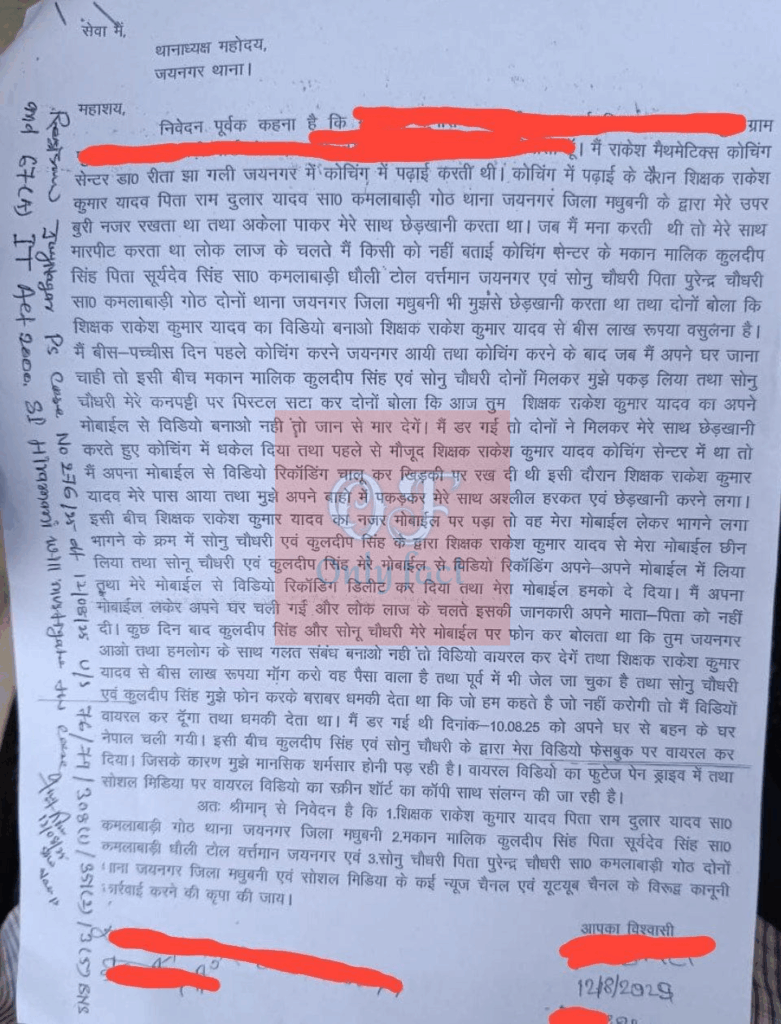 सेवा में,
थानाध्यक्ष महोदय,
जयनगर थाना।
महाशय,
निवेदन पूर्वक कहना है कि
ग्राम
हूँ। मैं राकेश मैथमेटिक्स कोचिंग
सेन्टर डा0 रीता झा गली जयनगर में कोचिंग में पढ़ाई करती थी। कोचिंग में पढाई के दौरान शिक्षक राकेश
कुमार यादव पिता राम दुलार यादव सा0 कमलाबाड़ी गोठ थाना जयनगर जिला मधुबनी के द्वारा मेरे उपर
बुरी नजर रखता था तथा अकेला पाकर मेरे साथ छेड़खानी करता था। जब मैं मना करती थी तो मेरे साथ
मारपीट करता था लोक लाज के चलते मैं किसी को नहीं बताई कोचिंग सेन्टर के मकान मालिक कुलदीप
सिंह पिता सूर्यदेव सिंह सा0 कमलाबाड़ी धौली टोल वर्त्तमान जयनगर एवं सोनु चौधरी पिता पुरेन्द्र चौधरी
सा0 कमलाबाड़ी गोठ दोनों थाना जयनगर जिला मधुबनी भी मुझसे छेड़खानी करता था तथा दोनों बोला कि
शिक्षक राकेश कुमार यादव का विडियो बनाओ शिक्षक राकेश कुमार यादव से बीस लाख रूपया वसुलना है।
मैं बीस-पच्चीस दिन पहले कोचिंग करने जयनगर आयी तथा कोचिंग करने के बाद जब मैं अपने घर जाना
चाही तो इसी बीच मकान मालिक कुलदीप सिंह एवं सोनु चौधरी दोनों मिलकर मुझे पकड़ लिया तथा सोनु
चौधरी मेरे कनपट्टी पर पिस्टल सटा कर दोनों बोला कि आज तुम शिक्षक राकेश कुमार यादव का अपने
मोबाईल से विडियो बनाओ नही तो जान से मार देगें। मैं डर गई तो दोनों ने मिलकर मेरे साथ छेड़खानी
करते हुए कोचिंग में धकेल दिया तथा पहले से मौजूद शिक्षक राकेश कुमार यादव कोचिंग सेन्टर में था तो
मैं अपना मोबाईल से विडियो रिकॉडिंग चालू कर खिड़की पर रख दी थी इसी दौरान शिक्षक राकेश कुमार
यादव मेरे पास आया तथा मुझे अपने बाहों में पकड़कर मेरे साथ अश्लील हरकत एवं छेड़खानी करने लगा।
इसी बीच शिक्षक राकेश कुमार यादव का नजर मोबाईल पर पड़ा तो वह मेरा मोबाईल लेकर भागने लगा
भागने के क्रम में सोनु चौधरी एवं कुलदीप सिंह के द्वारा शिक्षक राकेश कुमार यादव से मेरा मोबाईल छीन
लिया तथा सोनू चौधरी एवं कुलदीप सिंह मेरे मोबाईल से विडियो रिकॉडिंग अपने-अपने मोबाईल में लिया
तथा मेरे मोबाईल से विडियो रिकॉडिंग डिलीट कर दिया तथा मेरा मोबाईल हमको दे दिया। मैं अपना
मोबाईल लकेर अपने घर चली गई और लोक लाज के चलते इसकी जानकारी अपने माता-पिता को नहीं
दी। कुछ दिन बाद कुलदीप सिंह और सोनू चौधरी मेरे मोबाईल पर फोन कर बोलता था कि तुम जयनगर
आओ तथा हमलोग के साथ गलत संबंध बनाओ नही तो विडियो वायरल कर देगें तथा शिक्षक राकेश कुमार
यादव से बीस लाख रूपया माँग करो वह पैसा वाला है तथा पूर्व में भी जेल जा चुका है तथा सोनु चौधरी
एवं कुलदीप सिंह मुझे फोन करके बराबर धमकी देता था कि जो हम कहते है जो नहीं करोगी तो मैं विडियों
वायरल कर दूँगा तथा धमकी देता था। मैं डर गई थी दिनांक-10.08.25 को अपने घर से बहन के घर
नेपाल चली गयी। इसी बीच कुलदीप सिंह एवं सोनु चौधरी के द्वारा मेरा विडियो फेसबुक पर वायरल कर
दिया। जिसके कारण मुझे मानसिक शर्मसार होनी पड़ रही है। वायरल विडियो का फुटेज पेन ड्राइव में तथा
सोशल मिडिया पर वायरल विडियो का स्क्रीन शॉर्ट का कॉपी साथ संलग्न की जा रही है।
अतः श्रीमान् से निवेदन है कि 1.शिक्षक राकेश कुमार यादव पिता राम दुलार यादव सा0
कमलाबाड़ी गोठ थाना जयनगर जिला मधुबनी 2.मकान मालिक कुलदीप सिंह पिता सूर्यदेव सिंह सा0
कमलाबाड़ी धौली टोल वर्त्तमान जयनगर एवं 3.सोनु चौधरी पिता पुरेन्द्र चौधरी सा0 कमलाबाड़ी गोठ दोनों
थाना जयनगर जिला मधुबनी एवं सोशल मिडिया के कई न्यूज चैनल एवं यूटयूब चैनल के विरूद्ध कानूनी
कार्रवाई करने की कृपा की जाय।
आपका विश्वासी
12/8/2025
Jaynagar PS Case No 276/25 dt 12/08/25 U/S 76/74/308(4)/351(2)/3(5) BNS
and 67(A) IT Act 2000 SI will investigate the case
OF
Only fact